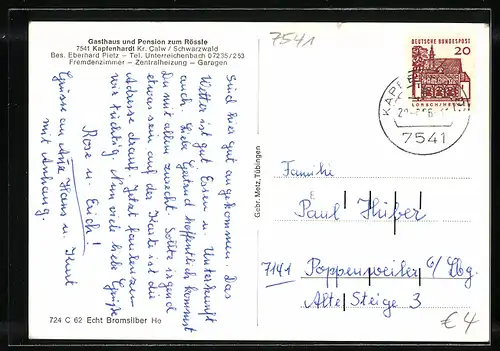 Gasthaus und Pension zum Rössle
7541 Kapfenhardt Kr. Calw / Schwarzwald
Bes. Eberhard Pietz – Tel. Unterreichenbach 07235/253
Fremdenzimmer – Zentralheizung – Garagen
Sind hier gut angekommen. Das
Wetter ist gut Essen u. Unterkunft
auch. Liebe Gertrud hoffentlich kommst
Du mit allem zurecht. Sollte irgend
etwas sein auf der Karte ist die
Adresse drauf. Jetzt faulenzen
wir tüchtig. Nun viele liebe Grüße
Rose u. Erich!
Grüsse an Hans u. Knut
mit Anhang.
724 C 62 Echt Bromsilber Ho
Gebr. Metz, Tübingen
7541
DEUTSCHE BUNDESPOST
20
LORSCH/HESSEN
7541
Familie
Paul Huber
7141 Poppenweiler b/ Lbg.
Alte Steige 3
€ 4